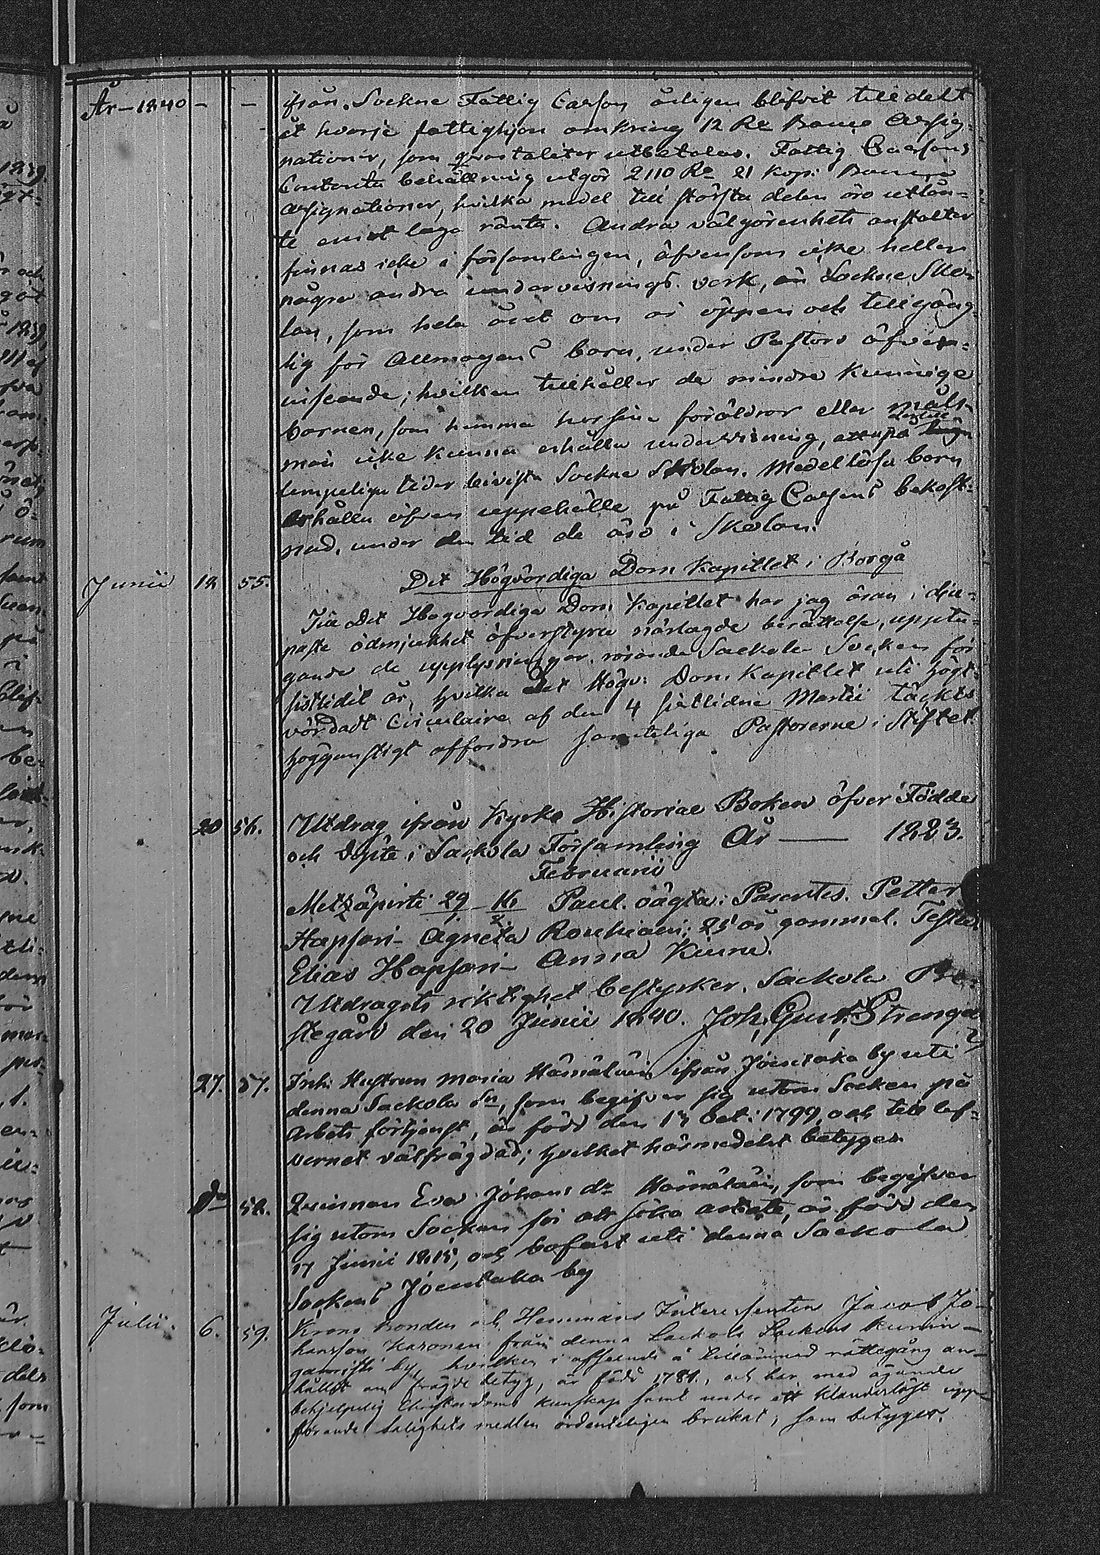 År 1840 - - ifrån Sockne Fattig Cassan årligen blifvit tilldelt
åt hvarje fattighjon omkring 12 Rr Banco Assig-
nationer, som qvartaliter utbetalas. Fattig Cassans
Contanta behållning utgör 2110 Rr 21 kop: Banco
Assignationer, hvilka medel till största delen äro utlån-
te emot laga ränta. Andra välgörenhets anstalter
finnas icke i församlingen, äfvensom icke heller
några andra undervisnings verk, än Sockne Sko-
lan, som hela året om är öppen och tillgäng
lig för Allmogens barn, under Pastors öfver-
inseende; hvilken tillhåller de mindre kunnige
barnen, som hemma hos sina föräldrar eller måls-
män icke kunna erhålla undervisning, att på
lämpeliga tider bevista Sockne Skolan. Medellösa barn
erhålla äfven uppehälle på Fattig Cassans bekost-
nad, under den tid de äro i Skolan.
Junii 18 55. Det Högvördiga Dom Kapitlet i Borgå
Till det Högvördiga Dom Kapitlet har jag äran i dju-
paste ödmjukhet öfverstyra närlagde berättelse, uppta-
gande de upplysningar rörande Sackola Socken för
sistledit år, hvilka det Högv: Dom Kapitlet uti högt-
vördadt Circulaire af den 4 sistlidne Martii täckts
höggunstigt affordra samteliga Pastorerne i Stiftet.
20 56. Utdrag ifrån Kyrko Historiae Boken öfver Födde
och Döpte i Sackola Församling År — 1823.
Februarii
Metsäpirti 29/1 16/2 Paul. oägta: Parentes. Petter
Hapsari - Agneta Roschiain; 25 år gammal. Testes
Elias Hapsari - Anna Kiuru.
Utdragets riktighet bestyrker. Sackola Pre-
stegård den 20 Junii 1840. Joh. Gust. Strenge
27. 57. Inh: Hustrun Maria Hämäläin ifrån Joentaka by uti
denna Sackola Sn, som begifver sig utom Socken på
Arbets förtjenst, är född den 15 Oct: 1799, och till lef-
vernet välfrägdad; hvilket härmedelst betyges.
do 58. Qvinnan Eva Johans dr Hämäläin, som begifver
sig utom Socken för att söka arbete, är född den
17 Junii 1815, och bofast uti denna Sackola
Sockens Joentaka by
Julii. 6. 59. Krono Bonden och Hemmans Intressenten Jacob Jo-
hansson Karonen från denna Sackola Sockens
by, hvilken i afseende å tillämnad rättegång an-
hållit om frägde betyg, är född 1781, och har med ägande
behjelpelig Christendoms kunskap samt under ett klanderlöst upp-
förande salighets medlen ordenteligen brukat; som betyges.